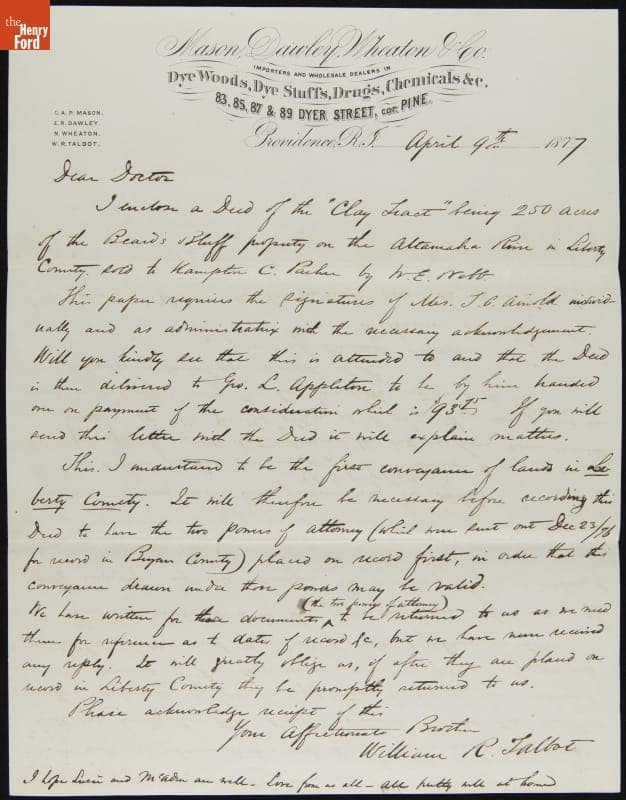 the
Henry
Ford
Mason, Dawley, Wheaton & Co.
IMPORTERS AND WHOLESALE DEALERS IN
Dye Woods, Dye Stuffs, Drugs, Chemicals &c.
83, 85, 87 & 89 DYER STREET, COR. PINE.
C. A. P. MASON.
E. R. DAWLEY.
N. WHEATON.
W. R. TALBOT.
Providence, R.I. April 9th 1877
Dear Doctor
I enclose a Deed of the "Clay Tract" being 250 acres
of the Beard's Bluff property on the Altamaha River in Liberty
County sold to Hampton C. Parker by W. E. Webb.
This paper requires the signatures of Mrs. S. C. Arnold individ-
ually and as administratrix with the necessary acknowledgement
Will you kindly see that this is attended to and that the Deed
is then delivered to Geo. L. Appleton to be by him handed
over on payment of the consideration which is $93.75 If you will
send this letter with the Deed it will explain matters.
This, I understand to be the first conveyance of lands in Li-
berty County. It will therefore be necessary before recording this
Deed to have the two powers of attorney (which were sent out Dec 23/76
for record in Bryan County) placed on record first, in order that this
conveyance drawn under those powers may be valid.
We have written for those documents (the two powers of attorney) to be returned to us as we need
them for reference as to dates of record &c, but we have never received
any reply. It will greatly oblige us, if after they are placed on
record in Liberty County they be promptly returned to us.
Please acknowledge receipt of this
Your Affectionate Brother
William R. Talbot
I hope and are well - Love from us all - All pretty well at home